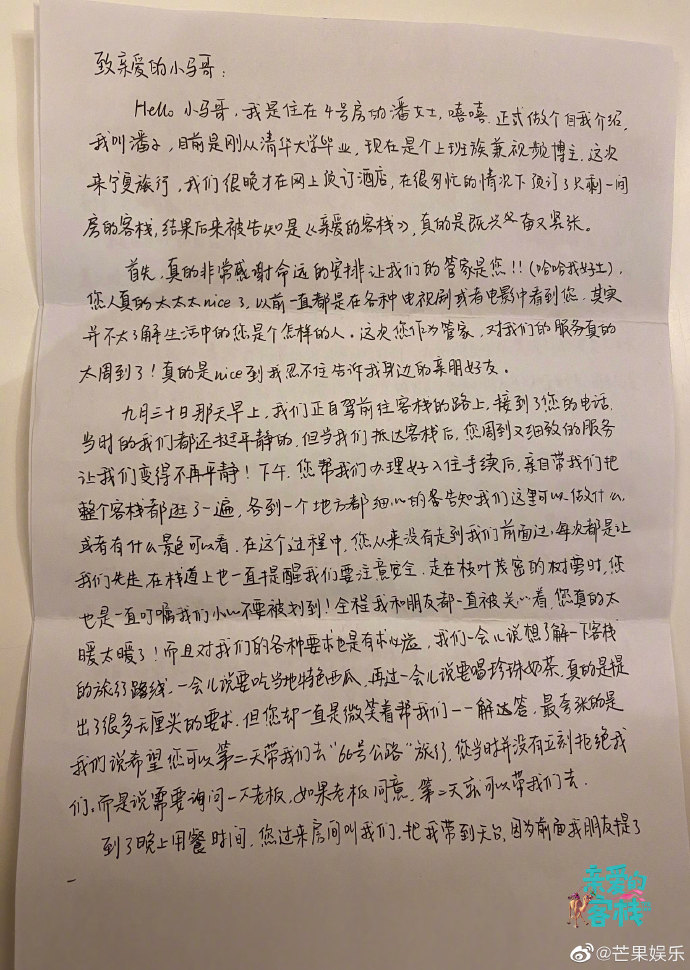 致亲爱的小马哥:
Hello 小马哥,我是住在4号房的潘女士,嘻嘻.正式做个自我介绍,
我叫潘子,目前是刚从清华大学毕业,现在是个上班族兼视频博主.这次
来宁夏旅行,我们很晚才在网上预订酒店,在很匆忙的情况下预订了只剩一间
房的客栈,结果后来被告知是《亲爱的客栈》,真的是既兴奋又紧张。
首先,真的非常感谢命运的安排让我们的管家是您!!(哈哈我好土),
您人真的太太太nice了,以前一直都是在各种电视剧或者电影中看到您,其实
并不太了解生活中的您是个怎样的人。这次您作为管家,对我们的服务真的
太周到了!真的是nice到我忍不住告诉我身边的亲朋好友。
九月三十日那天早上,我们正自驾前往客栈的路上,接到了您的电话.
当时的我们都还挺平静的.但当我们抵达客栈后,您周到又细致的服务
让我们变得不再平静!下午.您帮我们办理好入住手续后,亲自带我们把
整个客栈都逛了一遍,各到一个地方都细心的告知我们这里可以做什么.
或者有什么景色可以看.在这个过程中,您从来没有走到我们前面过,每次都是让
我们先走.在栈道上也一直提醒我们要注意安全.走在枝叶茂密的树旁时,您
也是一直叮嘱我们小心不要被划到!全程我和朋友都一直被关心着.您真的太
暖太暖了!而且对我们的各种要求也是有求必应,我们一会儿说想了解一下客栈
的旅行路线.一会儿说要吃当地特色西瓜.再过一会儿说要喝珍珠奶茶.真的是提
出了很多无厘头的要求.但您却一直是微笑着帮我们一一解达答.最夸张的是
我们说希望您可以第二天带我们去"66号公路"旅行,您当时并没有立刻拒绝我
们.而是说需要询问一下老板,如果老板同意,第二天就可以带我们去.
到了晚上用餐时间.您过来房间叫我们.把我带到天台.因为前面我朋友提了
亲爱的
客栈
@芒果娱乐